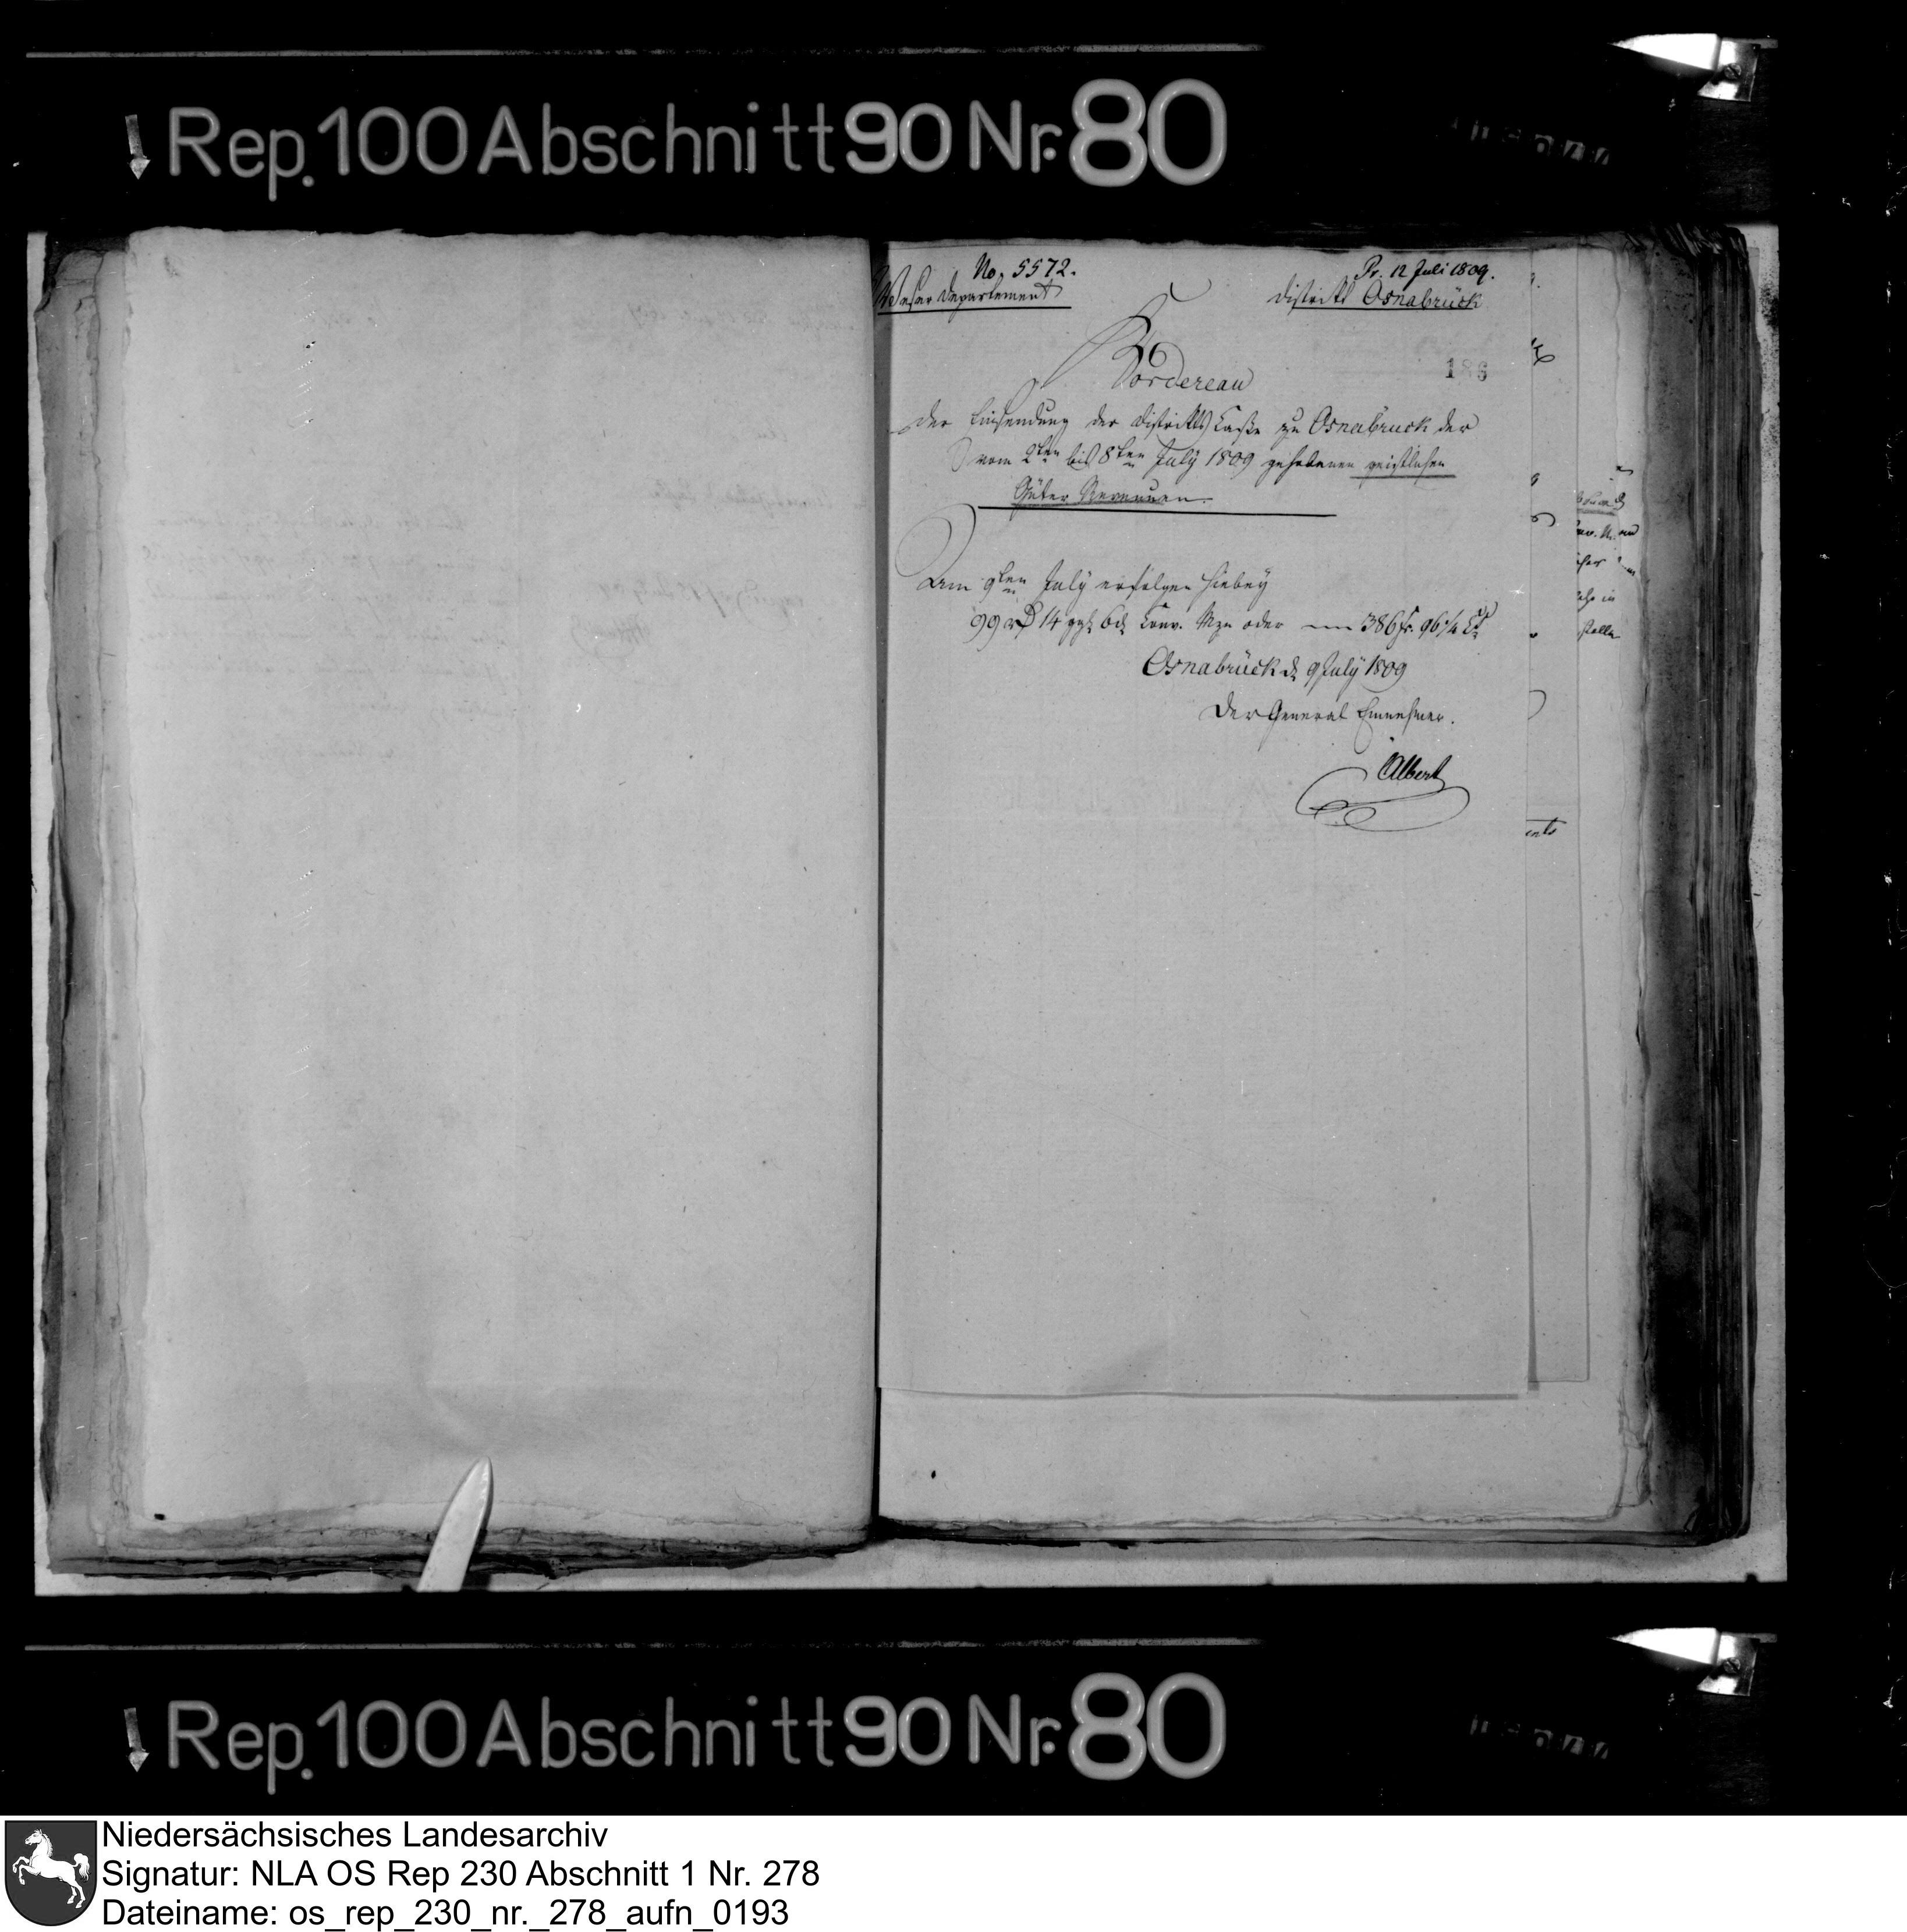 Rep. 100 Abschnitt 90 Nr. 80
No. 5572.
Pr. 12 Juli 1809.
Weser Departement
District Osnabrück
186
Bordereau
der Einsendung der Districts Casse zu Osnabrück der
vom 2ten bis 8ten July 1809 gehobenen geistlichen
Güter Revenuen.
Am 9ten July erfolgen hiebey
99 rthlr 14 ggl 6 d Conv. Mze oder 386 fr. 96 1/4 Ct
Osnabrück d 9 July 1809
Der General Einnehmer.
Albert
Rep. 100 Abschnitt 90 Nr. 80
Niedersächsisches Landesarchiv
Signatur: NLA OS Rep 230 Abschnitt 1 Nr. 278
Dateiname: os_rep_230_nr._278_aufn_0193